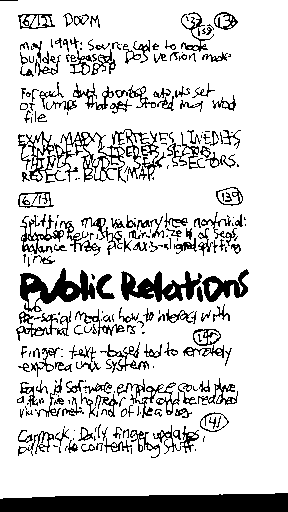 6/12 DOOM 137 138 139
May 1994: Source code to node
builder released. DOS version made
called IDBSP
For each dwd, doombsp outputs set
of lumps that get stored in a wad
file
LINEDEFS, SIDEDEF, SECTORS,
THINGS, NODES, SEGS, SSECTORS.
REJECT. BLOCKMAP
6/13 139
Splitting map via binary tree nontrivial:
doombsp heuristics: minimize # of segs,
balance trees, pick axis-aligned splitting
lines
Public Relations
Pre-social media: how to interact with
potential customers?
140
Finger: text-based tool to remotely
explore a unix system.
Each id software employee could place
a plan file in homedir that could be reached
via internet. Kind of like a blog
141
Carmack: Daily finger updates,
bullet-like content, blog stuff.